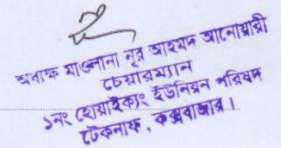 অধ্যক্ষ মাওলানা নূর আহমদ আনোয়ারী
চেয়ারম্যান
১নং হোয়াইক্যং ইউনিয়ন পরিষদ
টেকনাফ, কক্সবাজার।